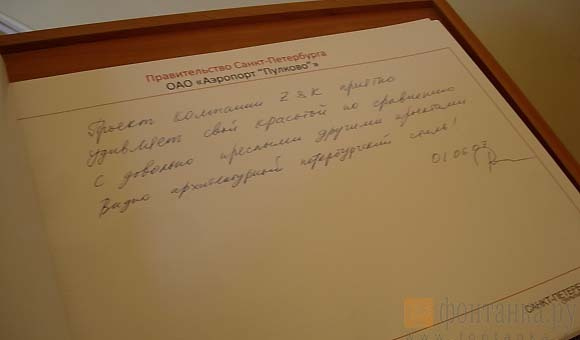 Правительство Санкт-Петербурга
ОАО «Аэропорт "Пулково"»
Проект компании Z&K приятно
удивляет свой красотой по сравнению
с довольно пресными другими проектами
Видно архитектурный петербургский стиль!
01.06.07
САНКТ-ПЕТЕР
фонтанка.ру